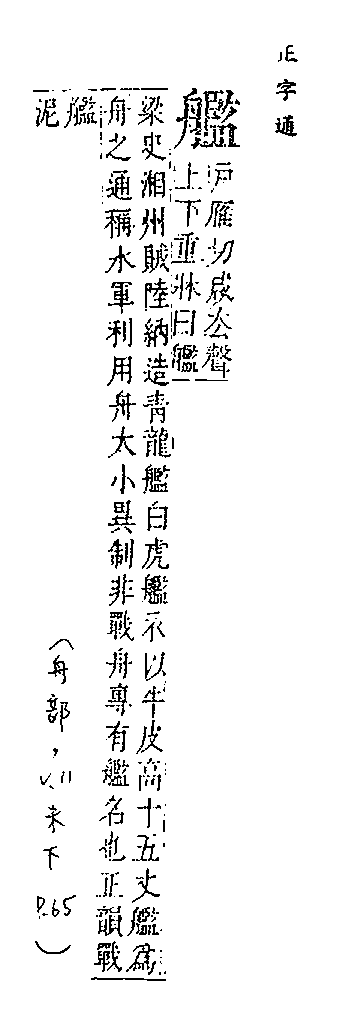 正字通
艦
戶雁切咸去聲
上下重牀曰艦
梁史湘州賊陸納造青龍艦白虎艦衣以牛皮高十五丈艦爲
舟之通稱水軍利用舟大小異制非戰舟專有艦名也正韻戰
艦泥
(舟部,
未下
P.65)